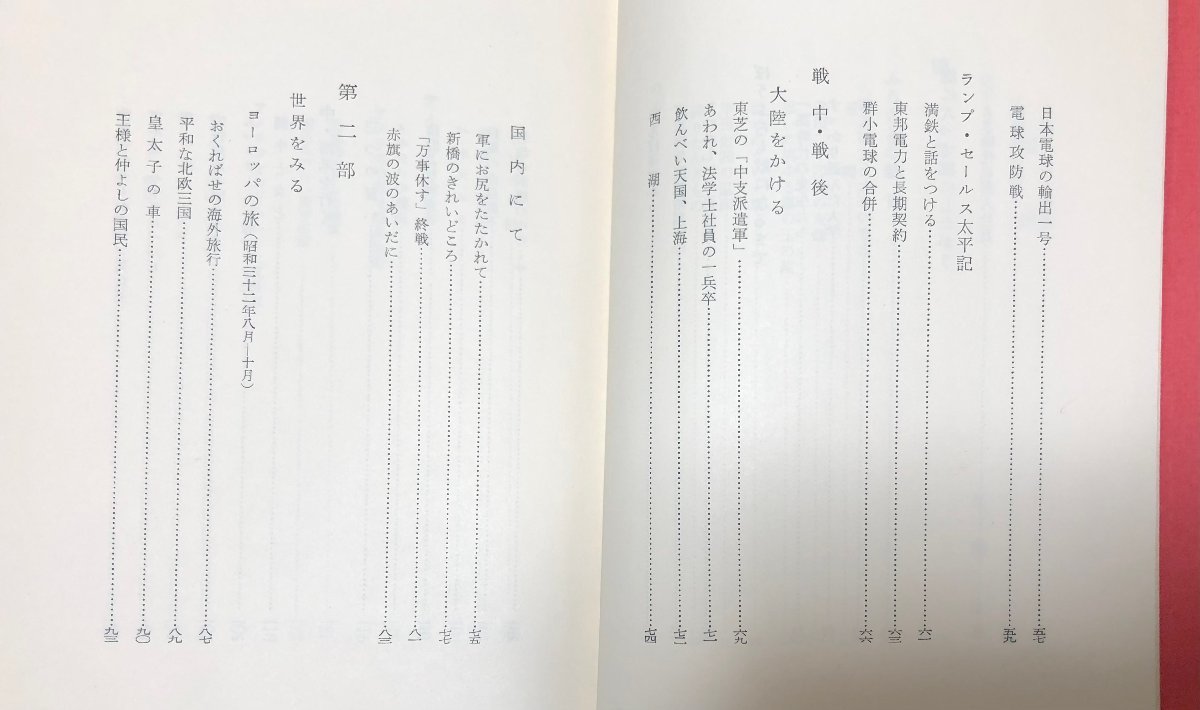 日本電球の輸出一号……五七
電球攻防戦……五九
ランプ・セールス太平記
満鉄と話をつける……六一
東邦電力と長期契約……六三
群小電球の合併……六六
戦中・戦後
大陸をかける
東芝の「中支派遣軍」……六九
あわれ、法学士社員の一兵卒……七一
飲んべい天国、上海……七二
西湖……七四
国内にて
軍にお尻をたたかれて……七五
新橋のきれいどころ……七七
「万事休す」終戦……八一
赤旗の波のあいだに……八三
第二部
世界をみる
ヨーロッパの旅(昭和三十二年八月―十月)
おくればせの海外旅行……八七
平和な北欧三国……八九
皇太子の車……九〇
王様と仲よしの国民……九三